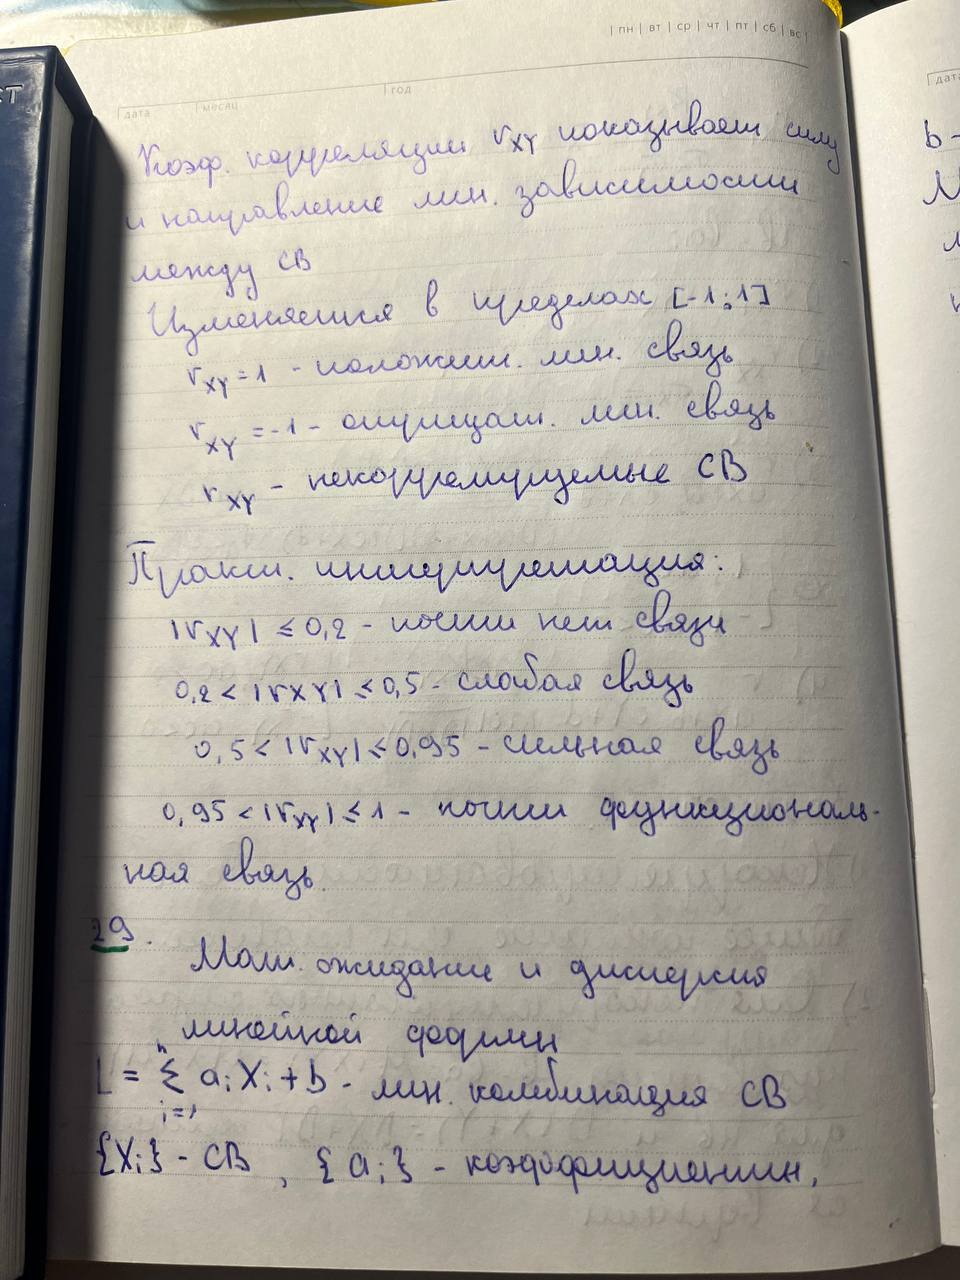 | пн | вт | ср | чт | пт | сб | вс |
дата | месяц | год
Коэф. корреляции rXY показывает силу
и направление лин. зависимости
между СВ
Изменяется в пределах [-1;1]
rXY = 1 - положит. лин. связь
rXY = -1 - отрицат. лин. связь
rXY - некоррелируемые СВ
Практ. интерпретация:
|rXY| ≤ 0,2 - почти нет связи
0,2 < |rXY| ≤ 0,5 - слабая связь
0,5 < |rXY| ≤ 0,95 - сильная связь
0,95 < |rXY| ≤ 1 - почти функциональ-
ная связь.
29.
Мат. ожидание и дисперсия
линейной формы
L = Σ i=1 n aᵢXᵢ + b - лин. комбинация СВ
{Xᵢ} - СВ, {aᵢ} - коэффициенты,
дата
b -